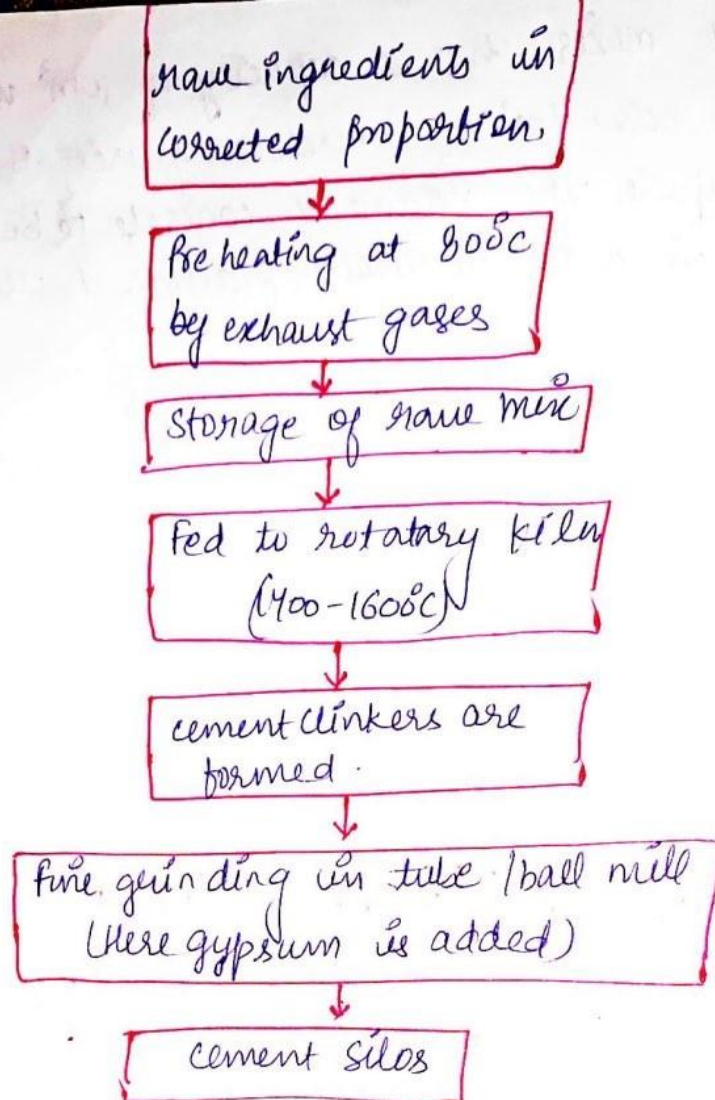 raw ingredients in
corrected proportion,
Pre heating at 800°c
by exhaust gases
Storage of raw mix
Fed to rotatary kiln
(1400-1600°C)
cement clinkers are
formed.
fine grinding in tube / ball mill
(Here gypsum is added)
cement silos